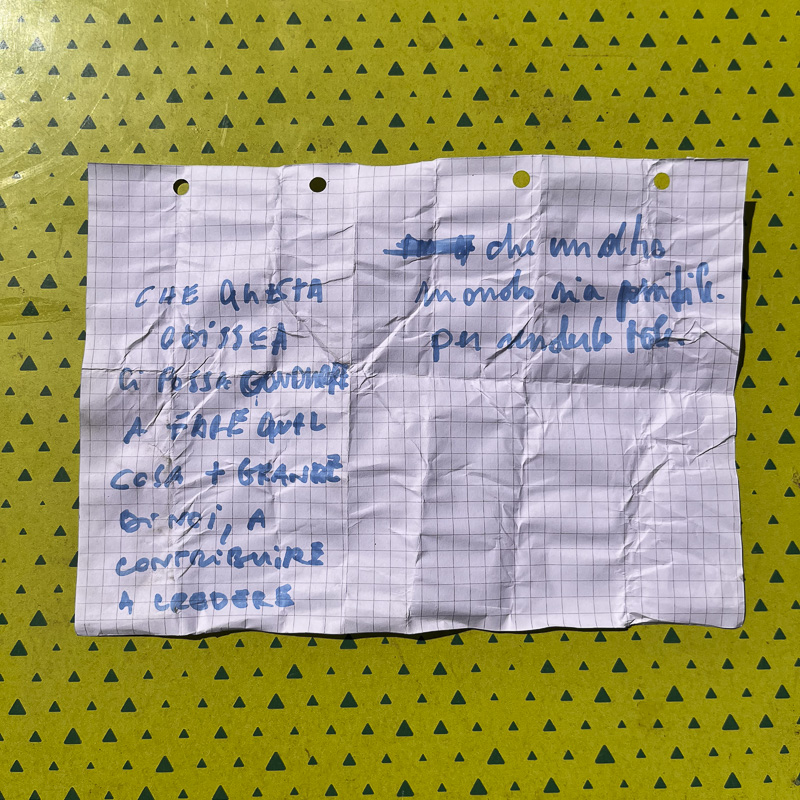 CHE QUESTA
ODISSEA
CI POSSA CONDURRE
A FARE QUAL
COSA + GRANDE
DI NOI, A
CONTRIBUIRE
A CREDERE
che un altro
mondo sia possibile.
per renderlo tale.